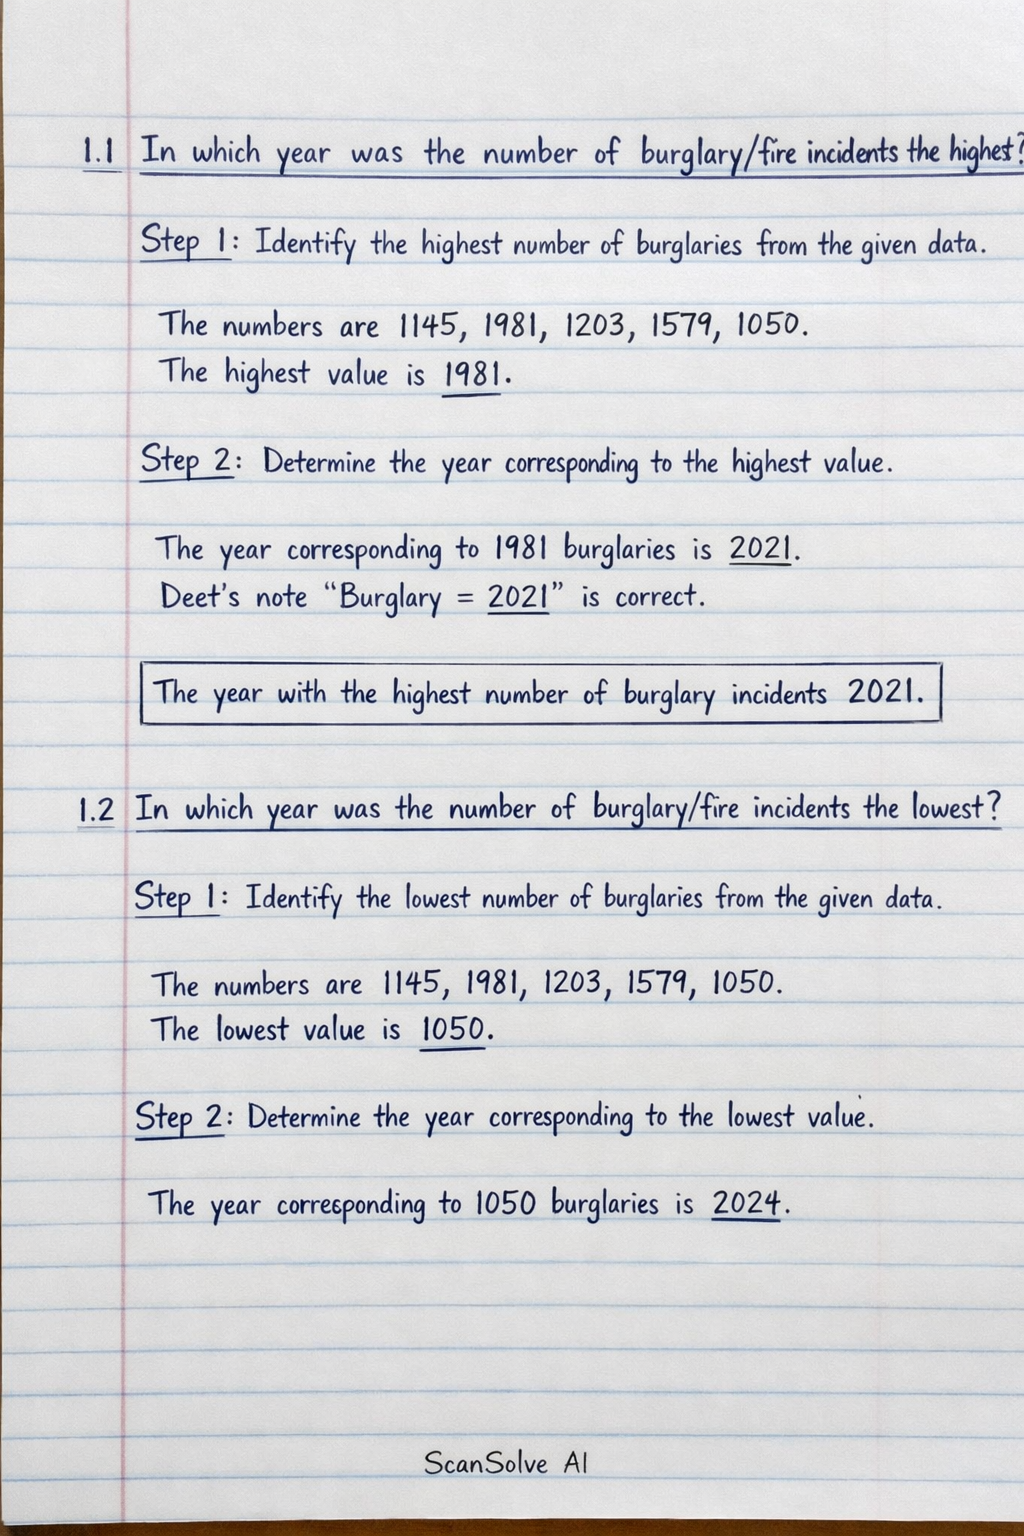 1.1 In which year was the number of burglary/fire incidents the highest?
Step 1: Identify the highest number of burglaries from the given data.
The numbers are 1145, 1981, 1203, 1579, 1050.
The highest value is 1981.
Step 2: Determine the year corresponding to the highest value.
The year corresponding to 1981 burglaries is 2021.
Deet's note “Burglary = 2021” is correct.
The year with the highest number of burglary incidents 2021.
1.2 In which year was the number of burglary/fire incidents the lowest?
Step 1: Identify the lowest number of burglaries from the given data.
The numbers are 1145, 1981, 1203, 1579, 1050.
The lowest value is 1050.
Step 2: Determine the year corresponding to the lowest value.
The year corresponding to 1050 burglaries is 2024.
ScanSolve AI